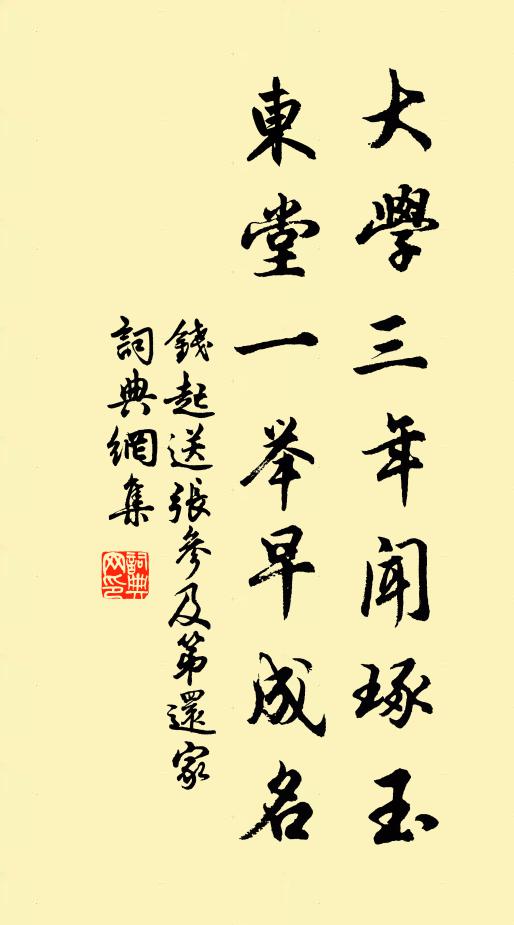 大學三年聞琢玉
東堂一举早成名
錢起送張參及第還家
詞典網集
詞典
网印